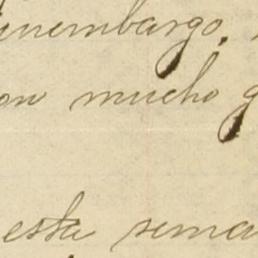 inembargo.
on mucho g
esta sema